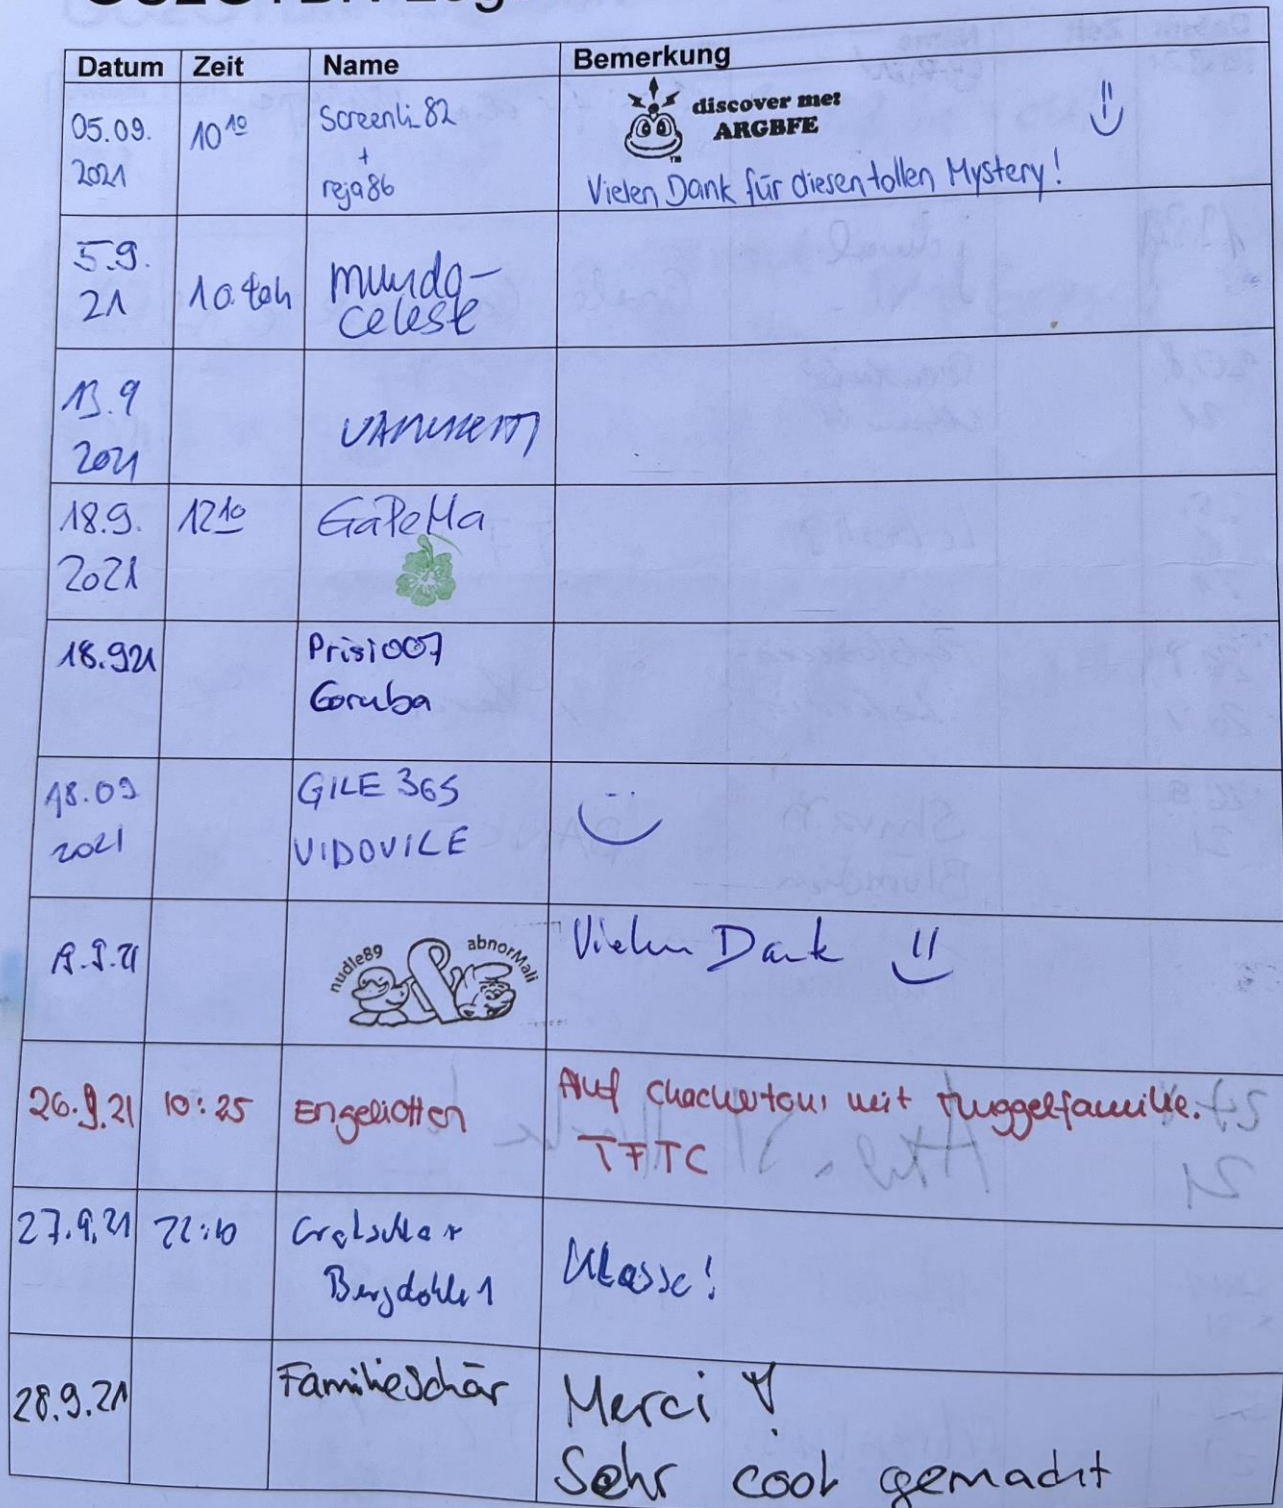 Datum Zeit Name Bemerkung
05.09. 10 10 Screenli82 discover me:
ARGBFE
2021 +
reja86 Vielen Dank für diesen tollen Mystery!
5.9.
21 mundo-
celeste
13.9
2021
18.9. 12 10 GaPeMa
2021
18.921 Prisi007
Goruba
18.09 GILE 365
2021 VIDOVILE
nudle89 abnorMali Vielen Dank
26.9.21 10:25 Engeliotten Auf Chachertour mit Muggelfamilie.
TFTC
27.9.21 22:10
Bergdohle1 Klasse!
28.9.21 FamilieSchär Merci
Sehr cool gemacht